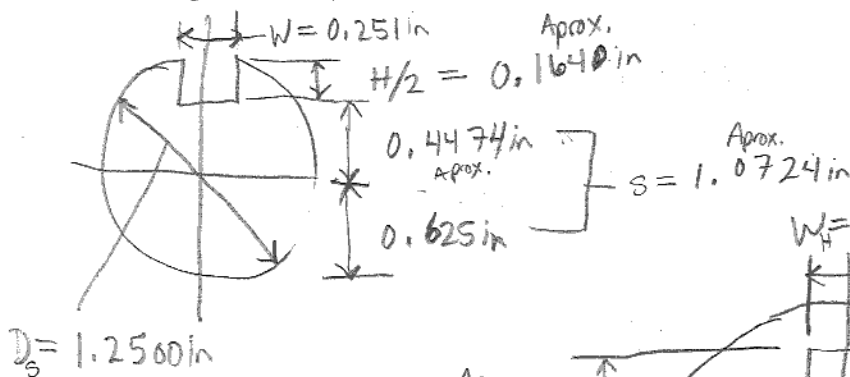 W = 0.251 in
Aprox.
H/2 = 0.1640 in
0.4474 in
Aprox.
0.625 in
Aprox.
S = 1.0724 in
W_H =
D_S = 1.2500 in